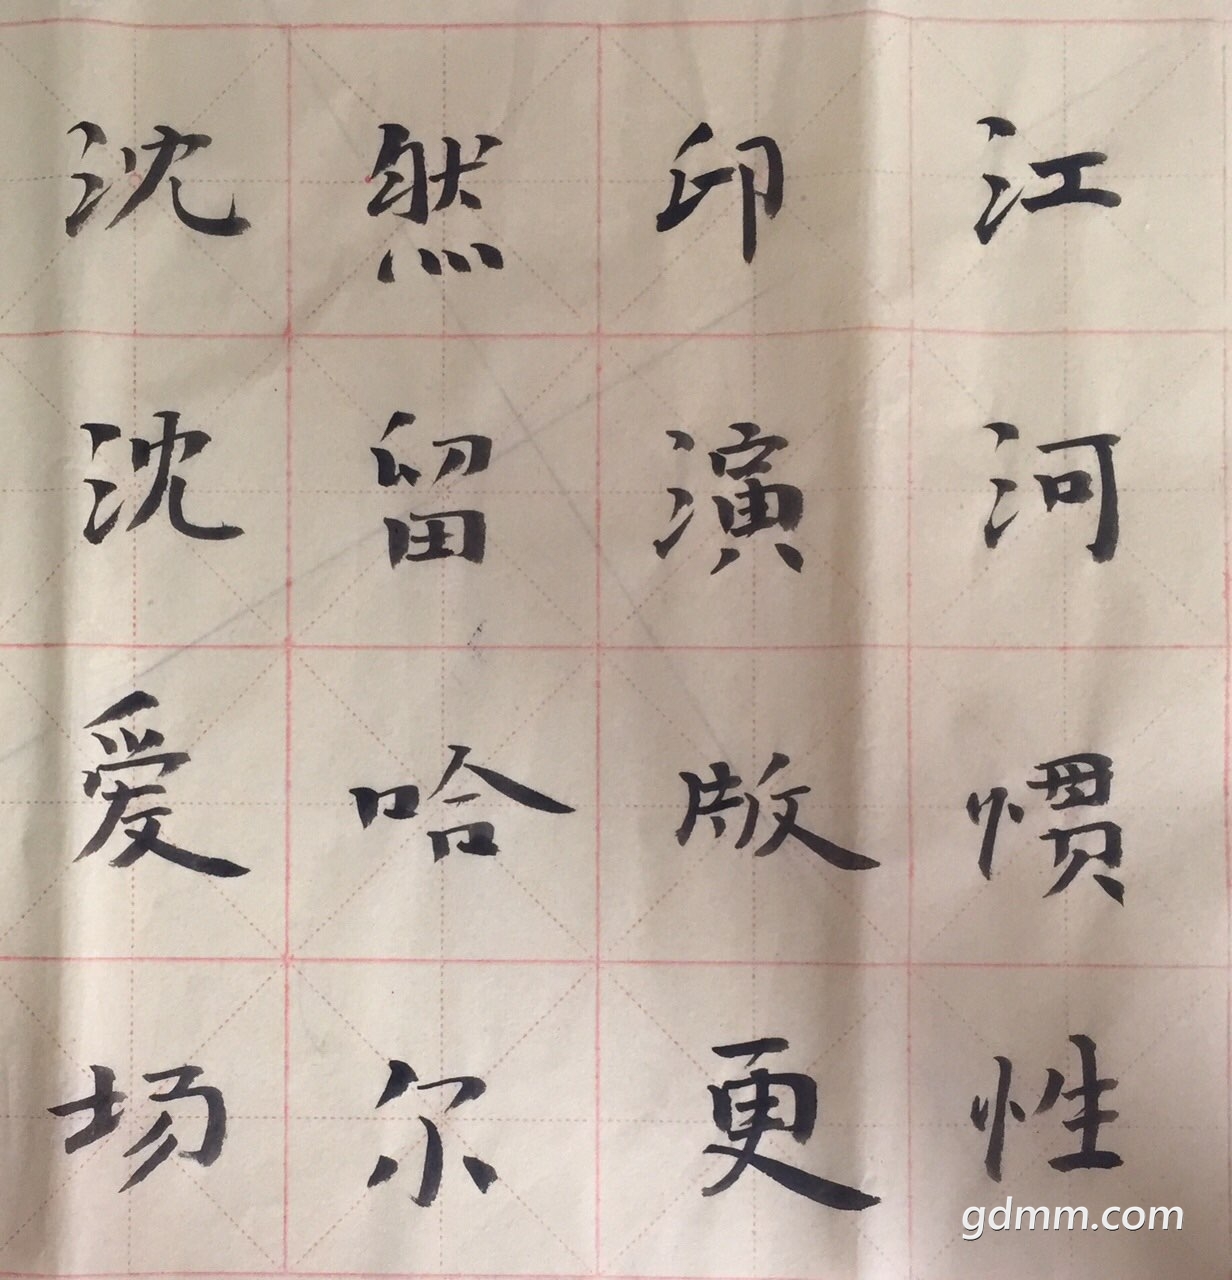 江河惯性
印演版更
然留哈尔
沈沈爱场
gdmm.com